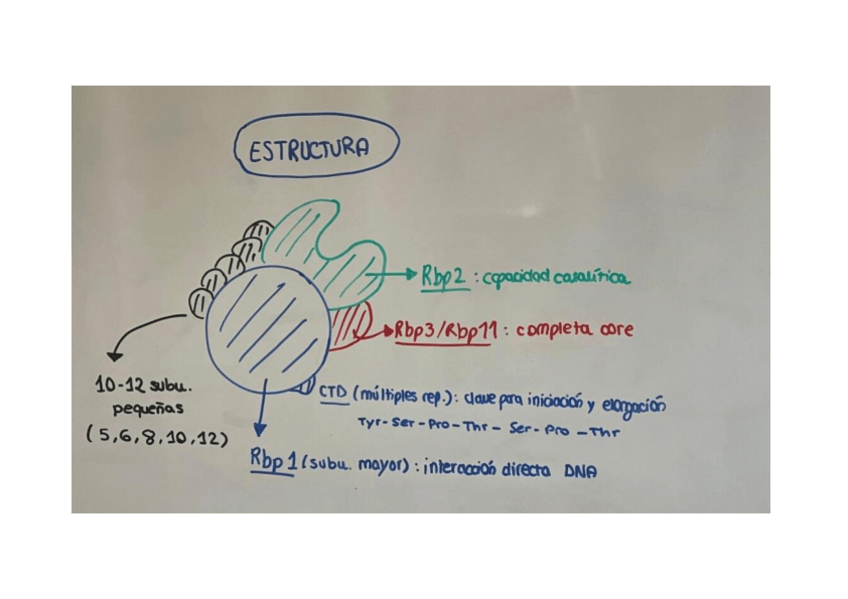 ESTRUCTURA
Rbp2 : capacidad catalítica
Rbp3/Rbp11 : completa core
10-12 subu.
pequeñas
(5,6,8,10,12)
CTD (múltiples rep.) : clave para iniciación y elongación
Tyr-Ser-Pro-Thr-Ser-Pro-Thr
Rbp1 (subu. mayor) : interacción directa DNA